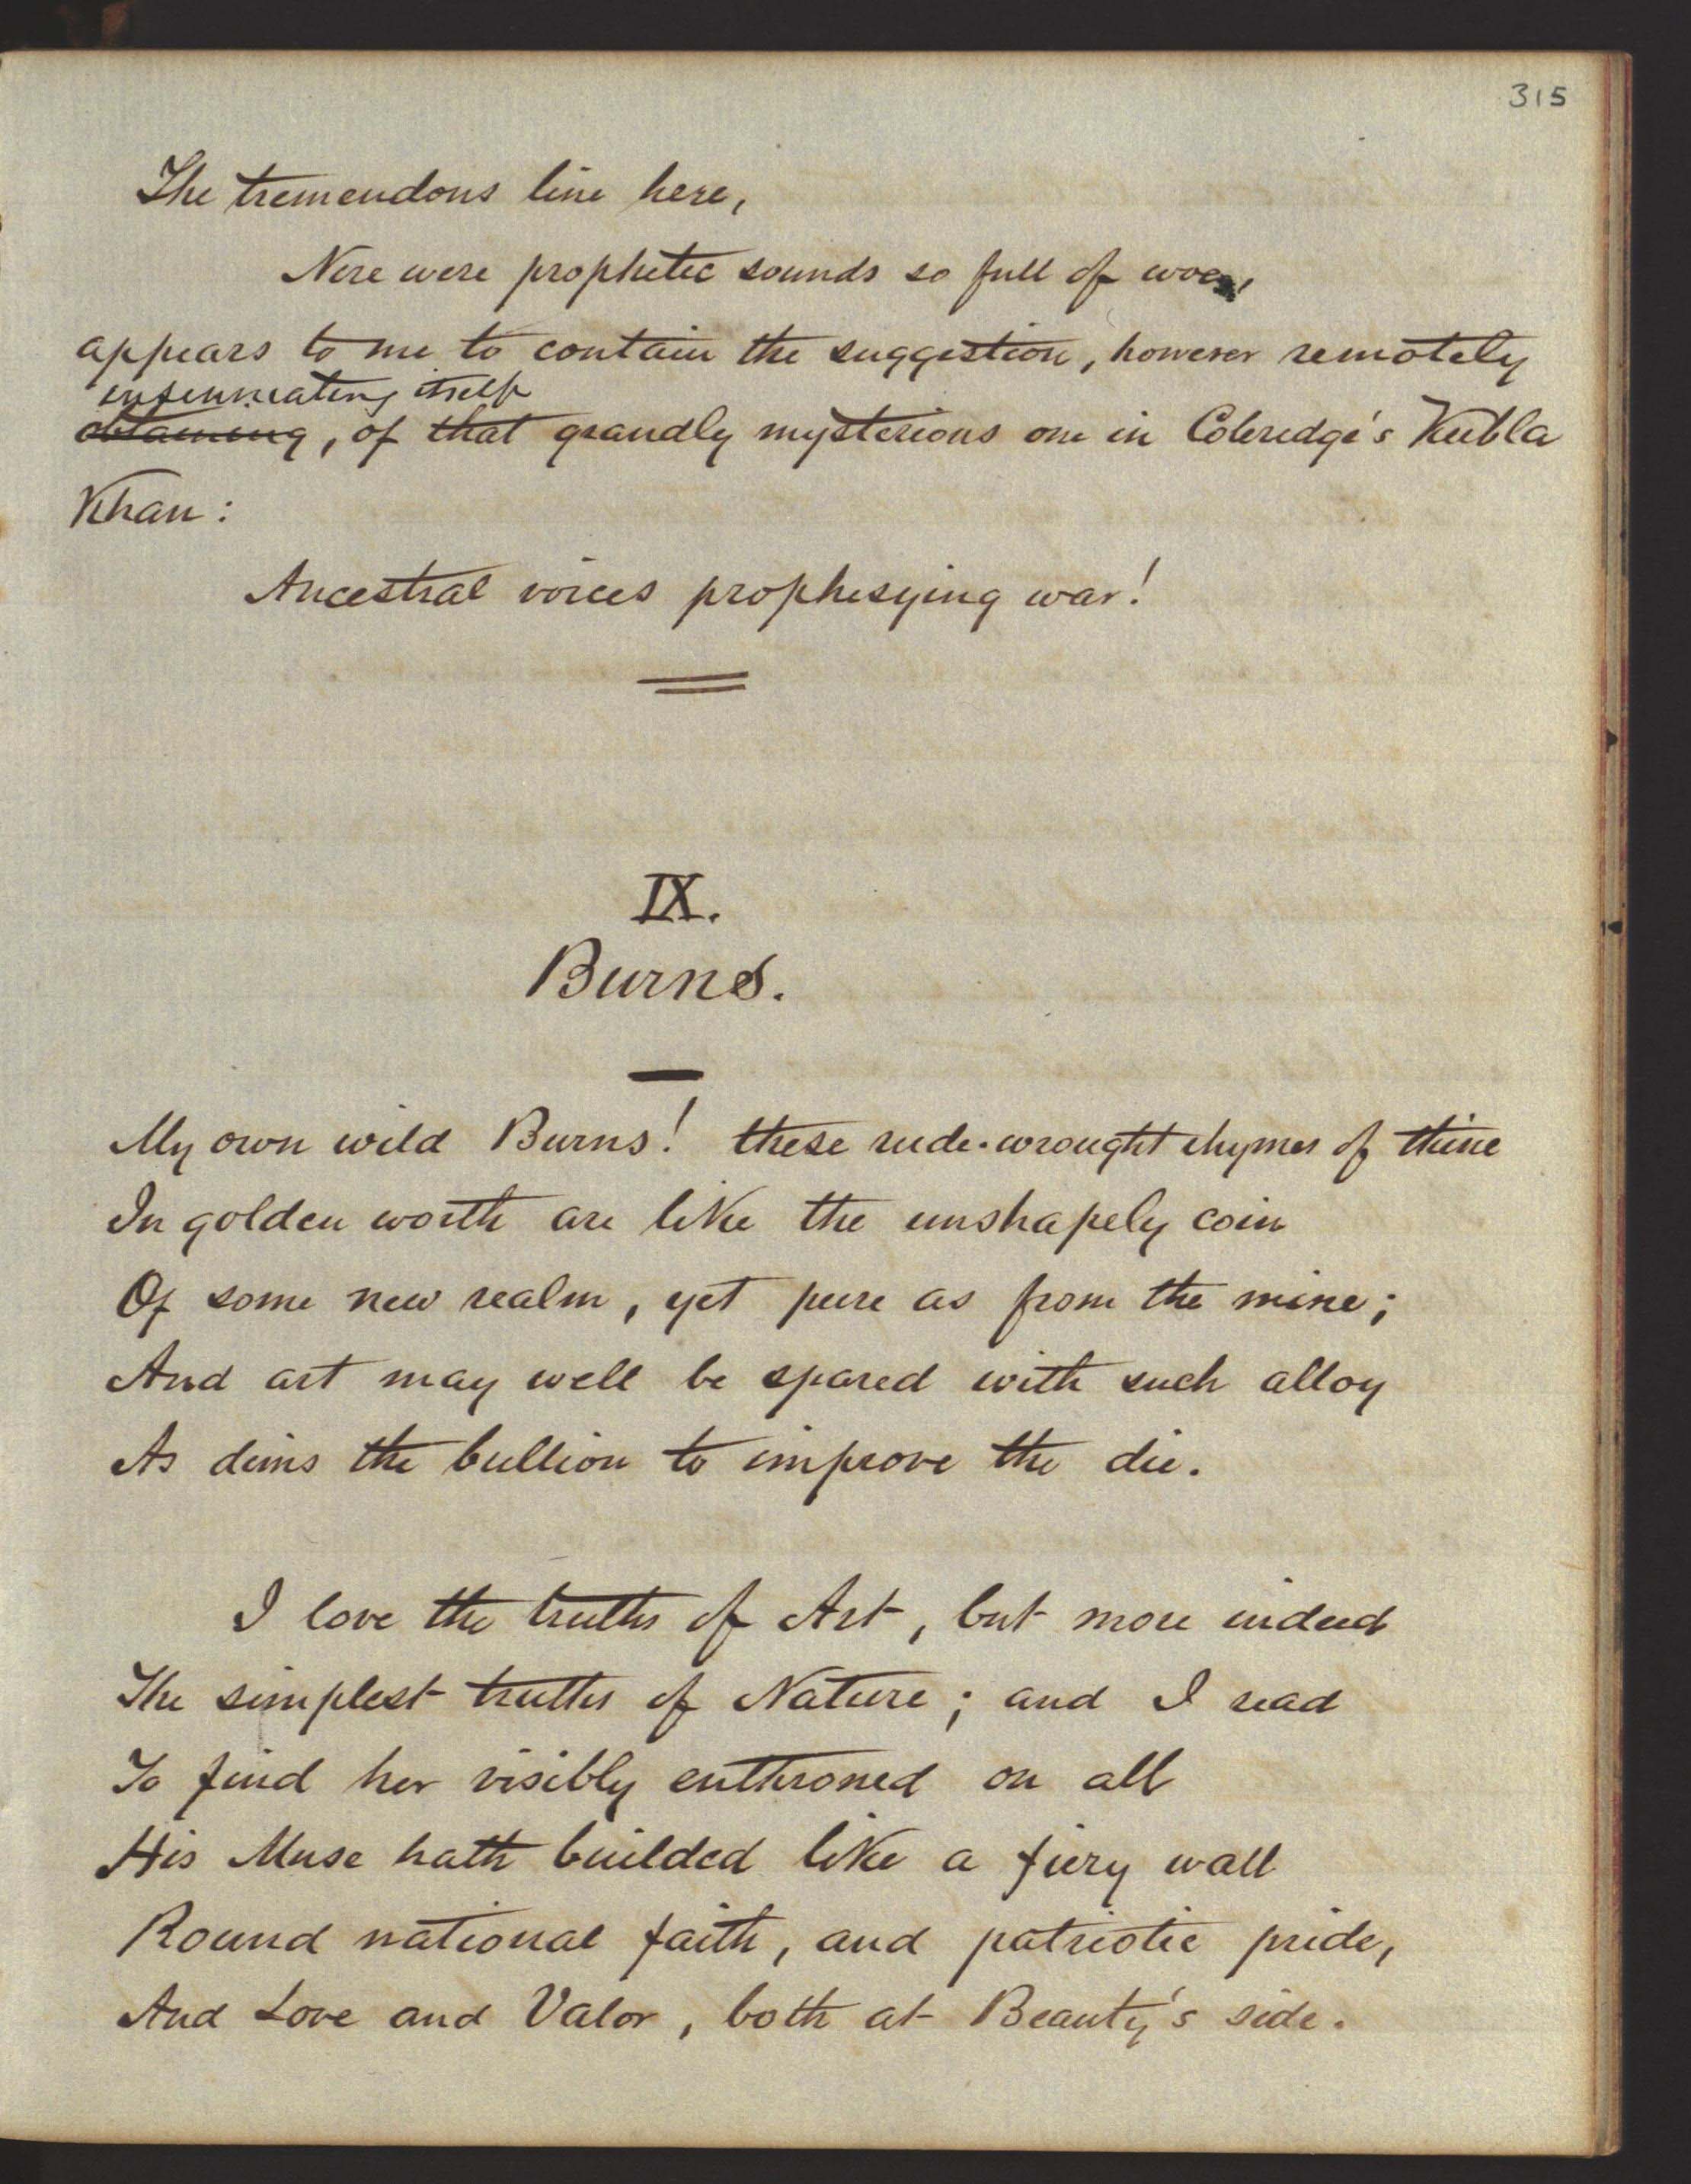 315
The tremendous line here,
Nere were prophetic sounds so full of woe,
appears to me to contain the suggestion, however remotely
insinuating itself
obtaining, of that grandly mysterious one in Coleridge's Kubla
Khan:
Ancestral voices prophesying war!
IX.
Burns.
My own wild Burns! these rude-wrought rhymes of thine
In golden worth are like the unshapely coin
Of some new realm, yet pure as from the mine;
And art may well be spared with such alloy
As dims the bullion to improve the die.
I love the truths of Art, but more indeed
The simplest truths of Nature; and I read
To find her visibly enthroned on all
His Muse hath builded like a fiery wall
Round national faith, and patriotic pride,
And Love and Valor, both at Beauty's side.